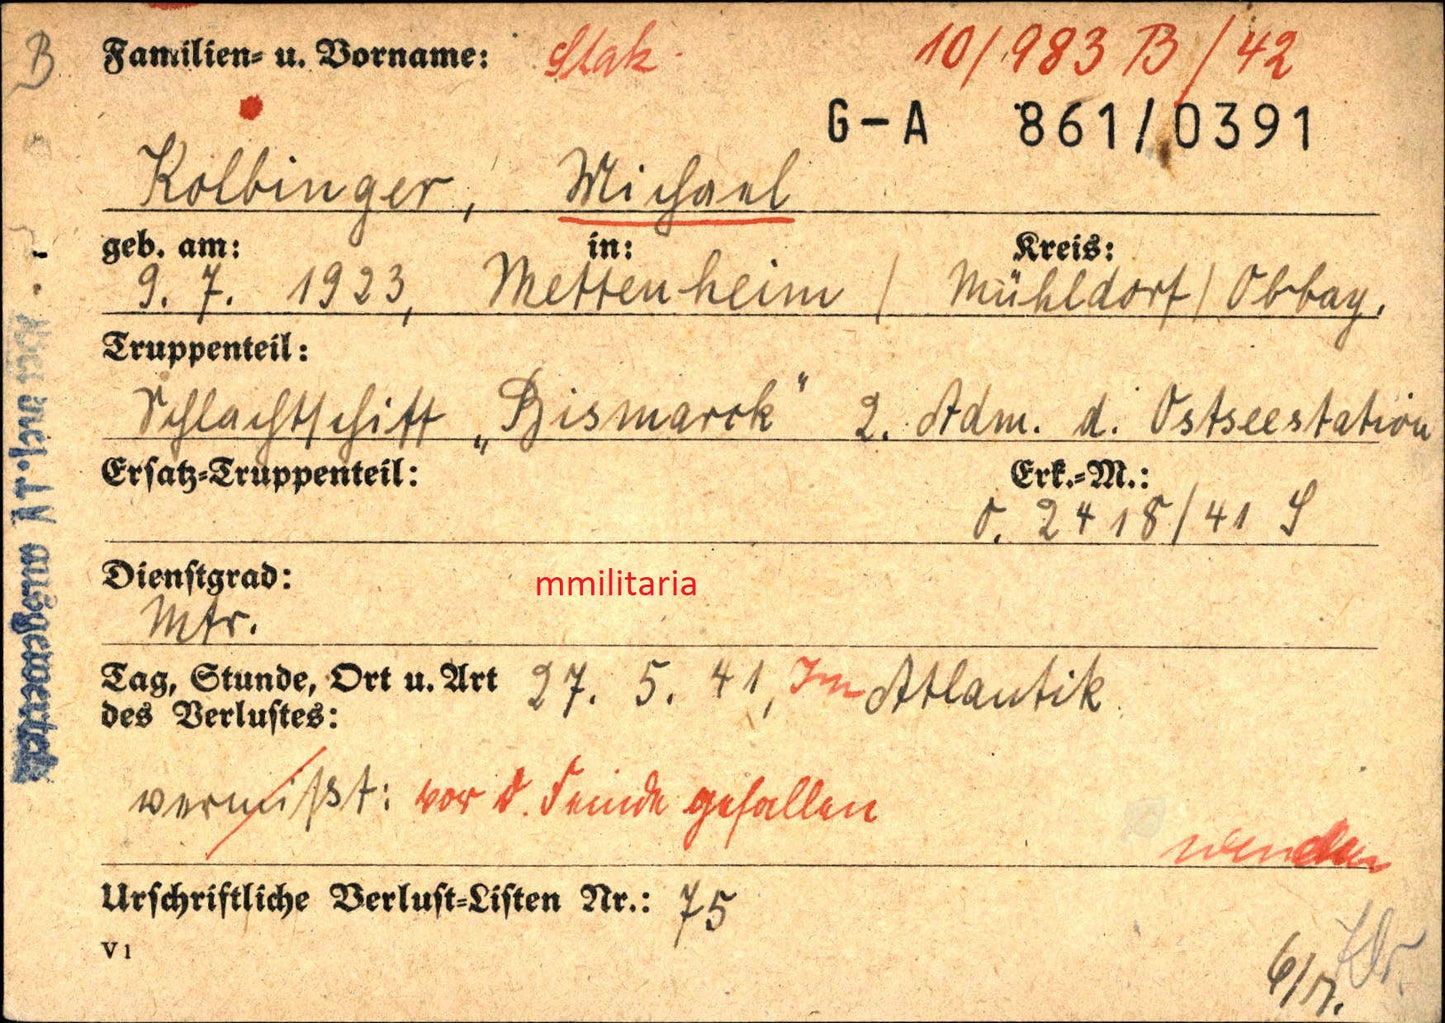 B
Familien- u. Vorname: Stak. 10/983 B/42
G-A 861/0391
Kolbinger, Michael
geb. am: in: Kreis:
9. 7. 1923, Mettenheim / Mühldorf / Obbay.
Truppenteil:
Schlachtschiff „Bismarck" 2. Adm. d. Ostseestation
Ersatz-Truppenteil: Erk.-M.:
O. 2418/41 S
Dienstgrad:
mmilitaria
Mtr.
Tag, Stunde, Ort u. Art 27. 5. 41, Im Atlantik
des Verlustes:
vermißt: vor d. Feinde gefallen
wenden
Urschriftliche Verlust-Listen Nr.: 75
V 1
ausgewertet